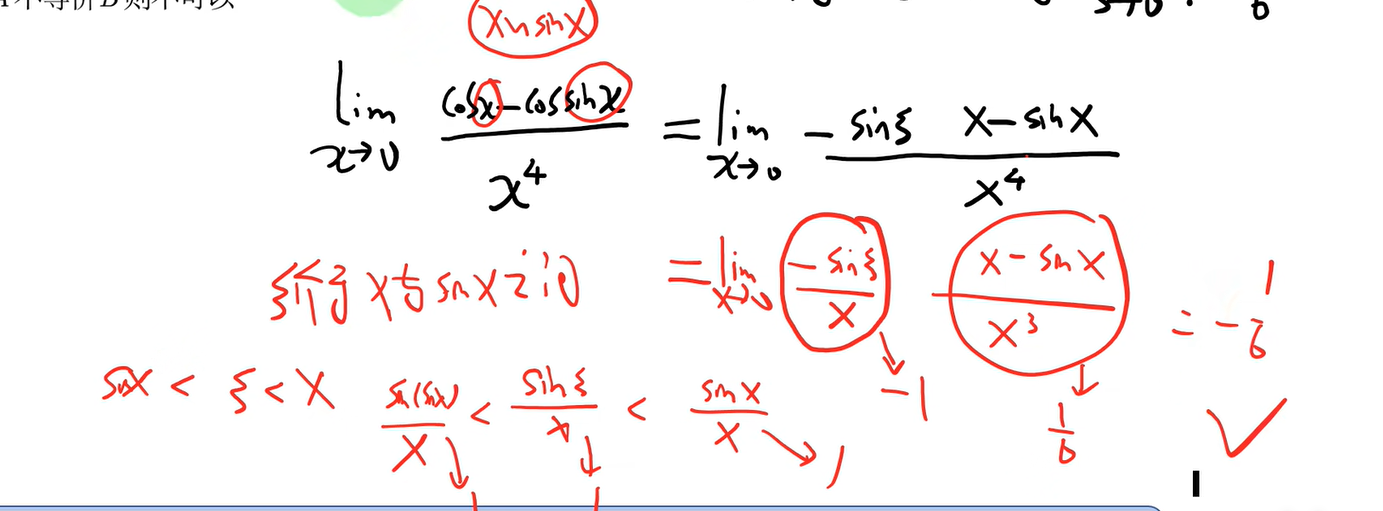 不等价
则不可以
x~sinx
lim x→0 (cosx-cos sinx)/x^4 = lim x→0 -sinξ (x-sinx)/x^4
ξ介于x与sinx之间 = lim x→0 (-sinξ)/x (x-sinx)/x^3 = -1/6
→ -1
→ 1/6
sinx < ξ < x sin(sinx)/x < sinξ/x < sinx/x → 1